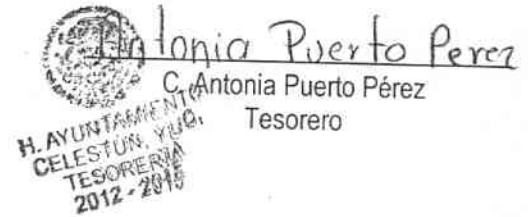 Antonia Puerto Perez
C. Antonia Puerto Pérez
Tesorero
H. AYUNTAMIENTO
CELESTUN, YUC.
TESORERIA
2012 - 2015